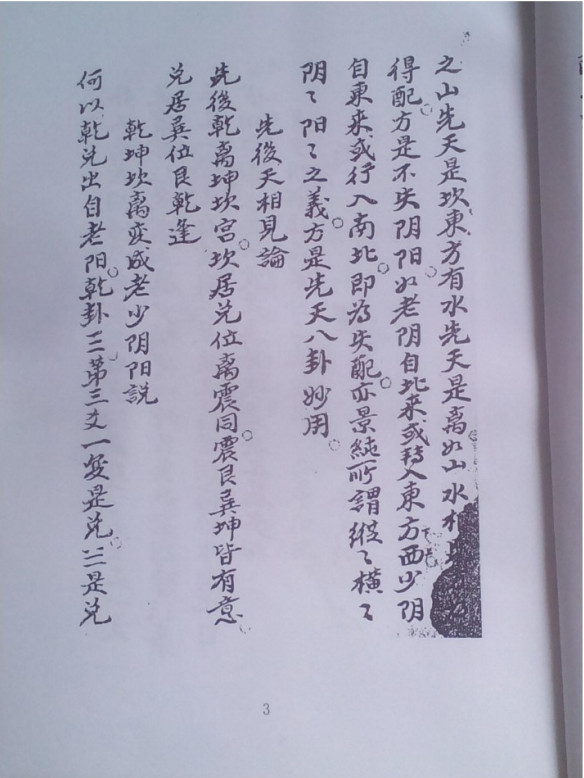 之山先天是坎東方有水先天是离如山水相
得配方是不失阴阳如老阴自北来或转入東方西少阴
自東来或行入南北即為失配亦景純所謂縱々横々
阴々阳々之義方是先天八卦妙用
先後天相見論
先後乾离坤坎宫坎居兑位离震同震艮巽坤皆有意
兑居巽位艮乾逢
乾坤坎离变成老少阴阳説
何以乾兑出自老阳乾卦三第三爻一变是兑☱是兑
3